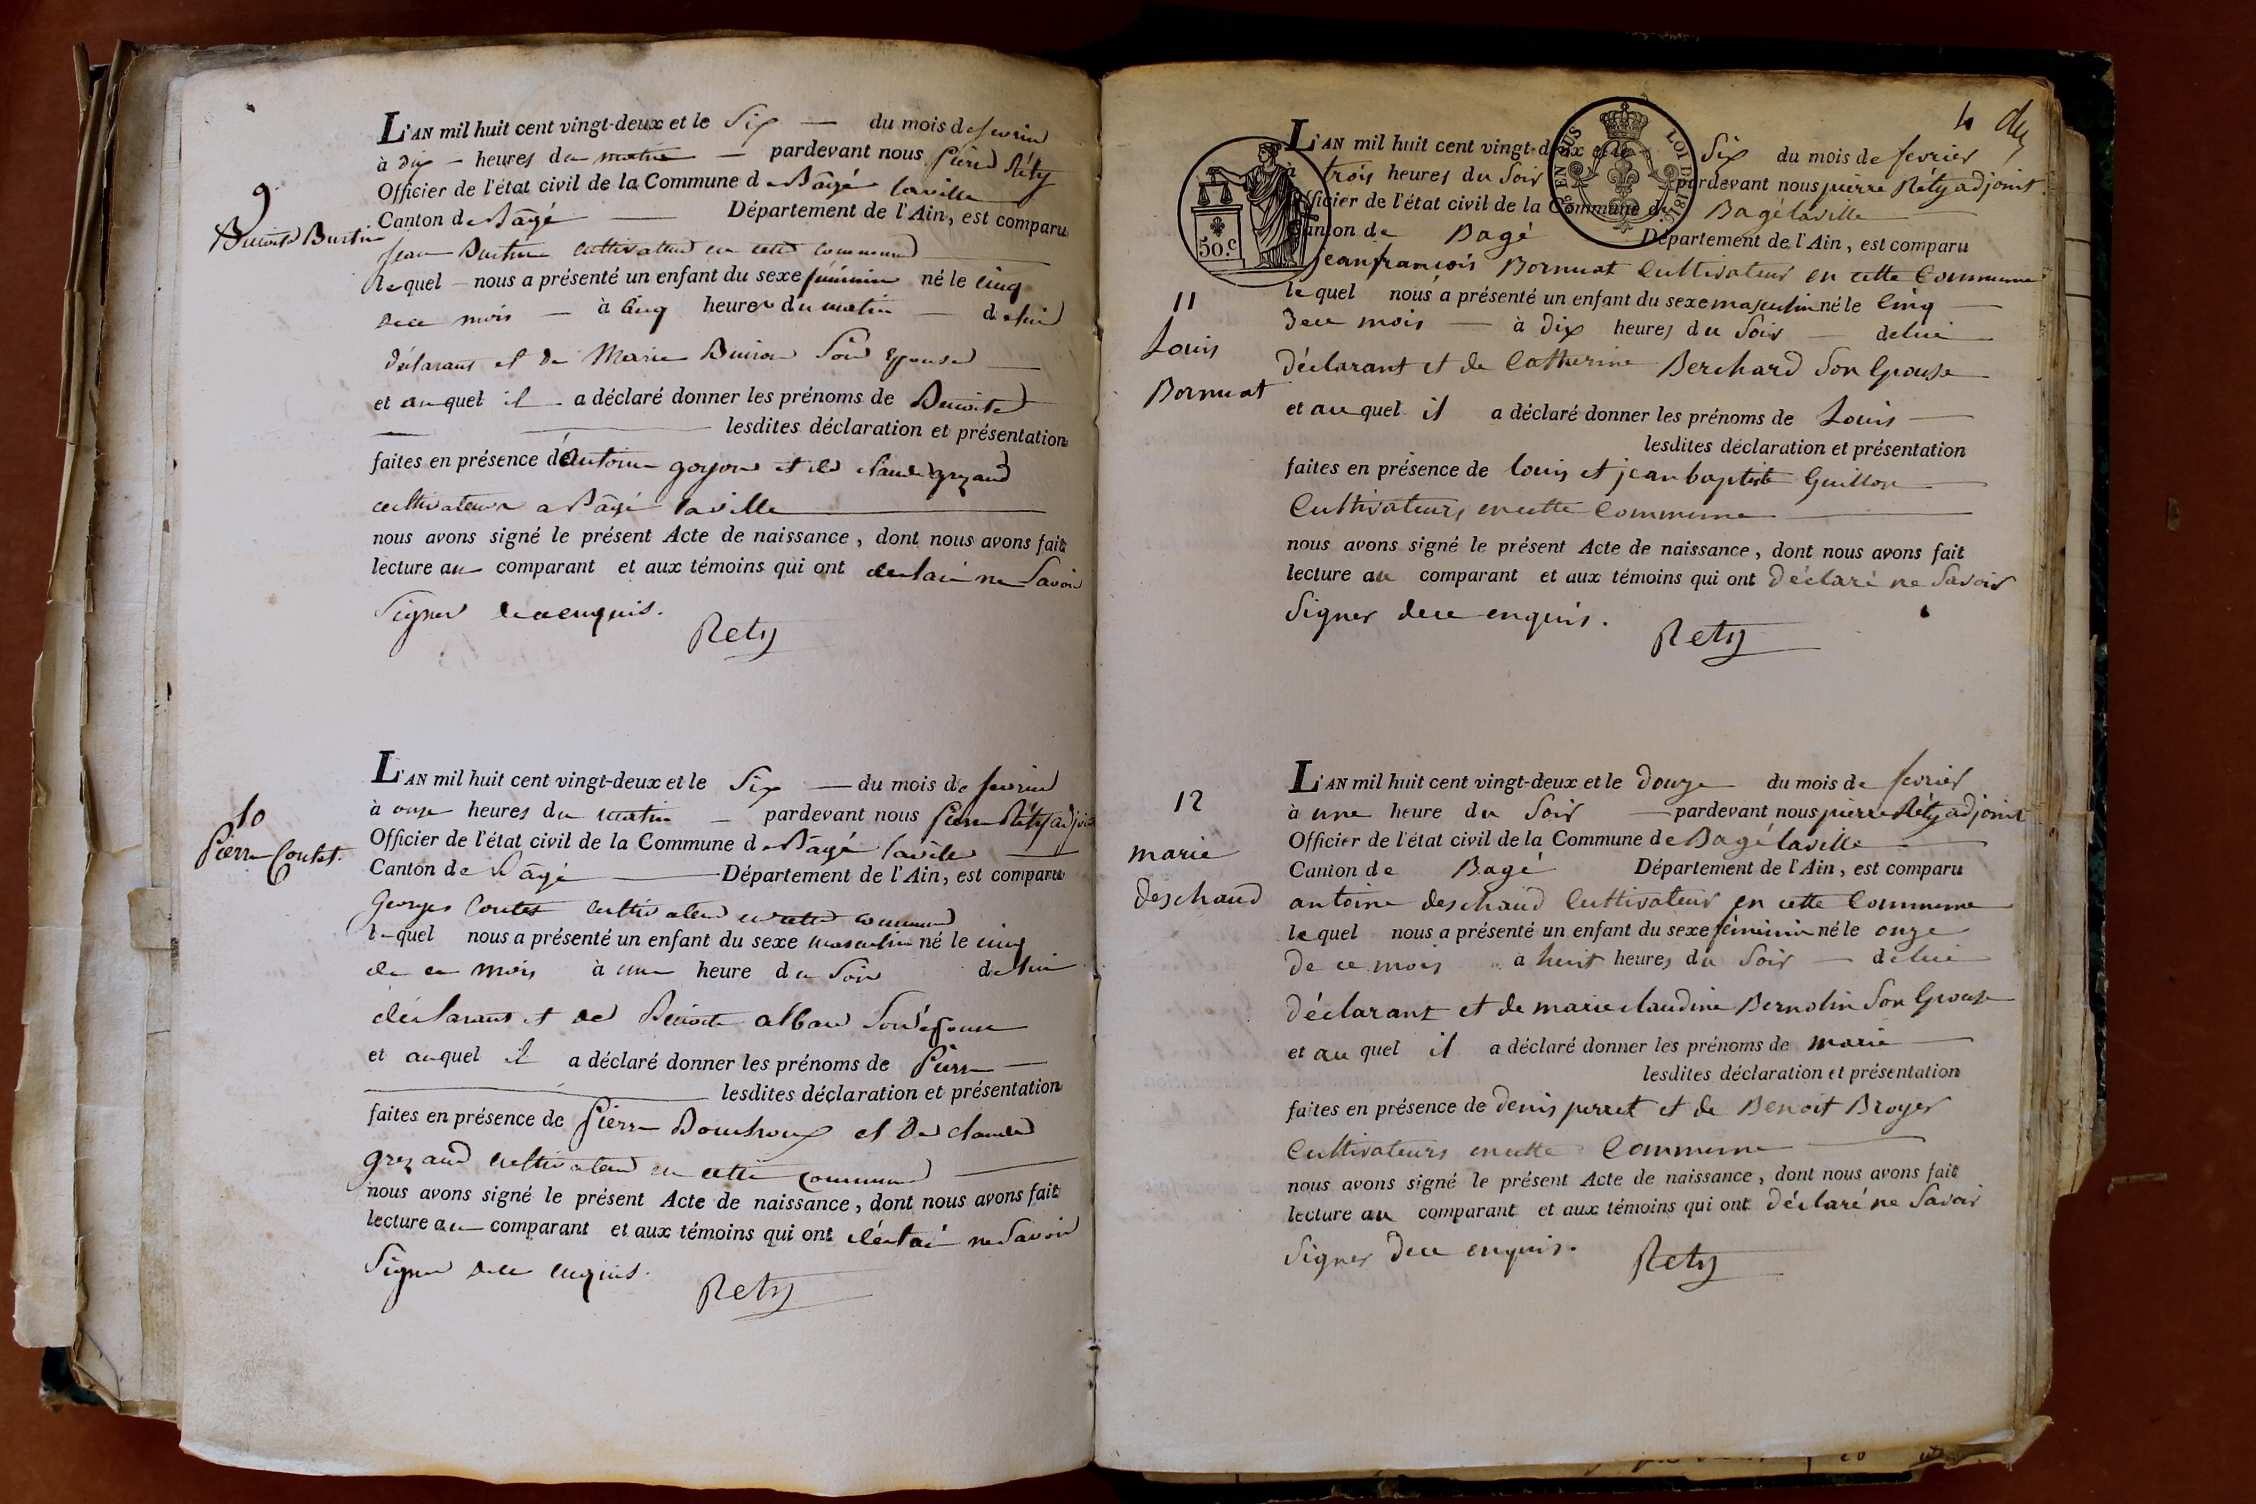 9
Benoite Burtin
L'AN mil huit cent vingt-deux et le Six — du mois de fevrier
à dix — heures du matin — pardevant nous Pierre Réty
Officier de l'état civil de la Commune de Bâgé laville
Canton de Bâgé — Département de l'Ain, est comparu
Jean Burtin cultivateur en cette commune
lequel nous a présenté un enfant du sexe féminin né le cinq
de ce mois — à cinq heures du matin — de lui
déclarant et de Marie Buiron Son Epouse
et auquel il a déclaré donner les prénoms de Benoite
lesdites déclaration et présentation
faites en présence d'Antoine goyon et de claude grezaud
cultivateurs a Bâgé laville
nous avons signé le présent Acte de naissance, dont nous avons fait
lecture au comparant et aux témoins qui ont declaré ne Savoir
Signer de ce enquis.
Rety
10
Pierre Coutet.
L'AN mil huit cent vingt-deux et le Six — du mois de fevrier
à onze heures du matin — pardevant nous Pierre Réty adjoint
Officier de l'état civil de la Commune de Bâgé laville
Canton de Bâgé — Département de l'Ain, est comparu
Georges Coutet cultivateur en cette commune
lequel nous a présenté un enfant du sexe masculin né le cinq
de ce mois à une heure du Soir de lui
déclarant et de Benoite alban Son épouse
et auquel il a déclaré donner les prénoms de Pierre
lesdites déclaration et présentation
faites en présence de Pierre Bouchoux et De claude
grezaud cultivateurs en cette commune
nous avons signé le présent Acte de naissance, dont nous avons fait
lecture au comparant et aux témoins qui ont déclaré ne Savoir
Signer de ce enquis.
Rety
4
50.c
EN SUS
LOI DE 1816.
11
Louis
Bornuat
L'AN mil huit cent vingt-deux et le Six du mois de fevrier
à trois heures du Soir pardevant nous pierre Réty adjoint
Officier de l'état civil de la Commune de Bagé laville
Canton de Bagé Département de l'Ain, est comparu
jean françois Bornuat Cultivateur en cette Commune
lequel nous a présenté un enfant du sexe masculin né le Cinq
De ce mois — à dix heures du Soir — de lui
déclarant et de Catherine Berchard Son Epouse
et au quel il a déclaré donner les prénoms de Louis
lesdites déclaration et présentation
faites en présence de louis et jean baptiste Guillon
Cultivateurs en cette Commune
nous avons signé le présent Acte de naissance, dont nous avons fait
lecture au comparant et aux témoins qui ont déclaré ne Savoir
Signer de ce enquis.
Rety
12
marie
deschaud
L'AN mil huit cent vingt-deux et le douze du mois de fevrier
à une heure du Soir — pardevant nous pierre Réty adjoint
Officier de l'état civil de la Commune de Bagé laville
Canton de Bagé Département de l'Ain, est comparu
antoine deschaud Cultivateur en cette Commune
lequel nous a présenté un enfant du sexe féminin né le onze
de ce mois à huit heures du Soir — de lui
déclarant et de marie claudine Bernolin Son Epouse
et au quel il a déclaré donner les prénoms de marie
lesdites déclaration et présentation
faites en présence de denis perret et de Benoit Broyer
Cultivateurs en cette Commune
nous avons signé le présent Acte de naissance, dont nous avons fait
lecture au comparant et aux témoins qui ont déclaré ne Savoir
Signer de ce enquis.
Rety